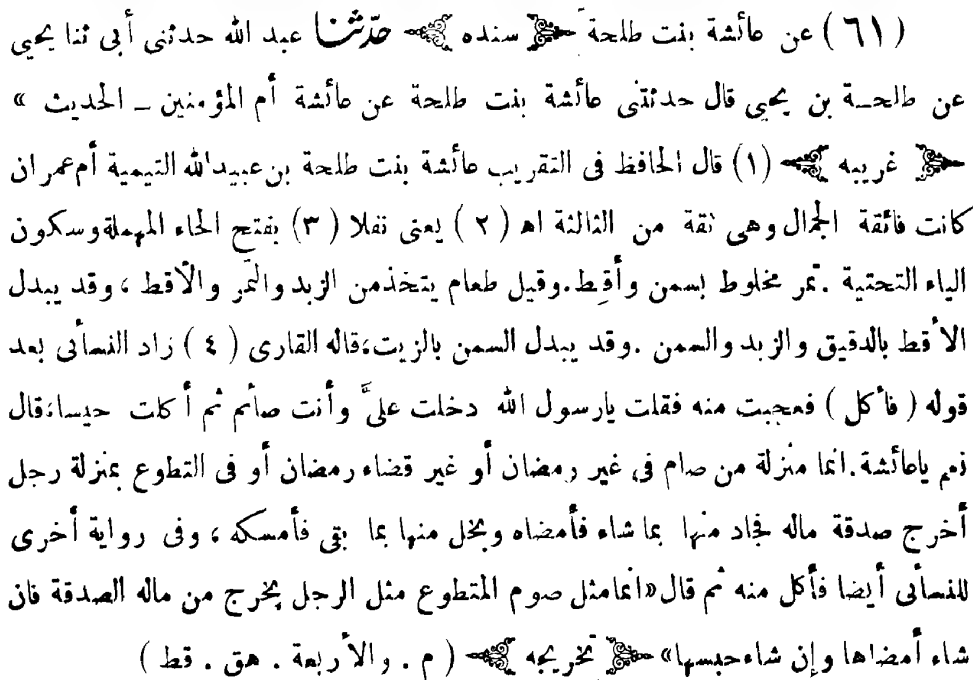 ( ٦١ ) عن عائشة بنت طلحة ﴿ سنده ﴾ حدّثنا عبد الله حدثنى أبى ثنا يحيى
عن طلحة بن يحيى قال حدثتنى عائشة بنت طلحة عن عائشة أم المؤمنين ــ الحديث »
﴿ غريبه ﴾ (١) قال الحافظ فى التقريب عائشة بنت طلحة بن عبيد الله التيمية أم عمران
كانت فائقة الجمال وهى ثقة من الثالثة اه ( ٢ ) يعنى نفلا ( ٣ ) بفتح الحاء المهملة وسكون
الياء التحتية . تمر مخلوط بسمن وأقِط.وقيل طعام يتخذمن الزبد والتمر والأقط ، وقد يبدل
الأقط بالدقيق والزبد والسمن .وقد يبدل السمن بالزيت،قاله القارى ( ٤ ) زاد النسائى بعد
قوله ( فأكل ) فعجبت منه فقلت يارسول الله دخلت علىَّ وأنت صائم ثم أكلت حيسا،قال
نعم ياعائشة.انما منزلة من صام فى غير رمضان أو غير قضاء رمضان أو فى التطوع بمنزلة رجل
أخرج صدقة ماله فجاد منها بما شاء فأمضاه وبخل منها بما بقى فأمسكه ، وفى رواية أخرى
للنسائى أيضا فأكل منه ثم قال «انمامثل صوم المتطوع مثل الرجل يخرج من ماله الصدقة فان
شاء أمضاها وإن شاءحبسها» ﴿ تخريجه ﴾ ( م . والأربعة . هق . قط )